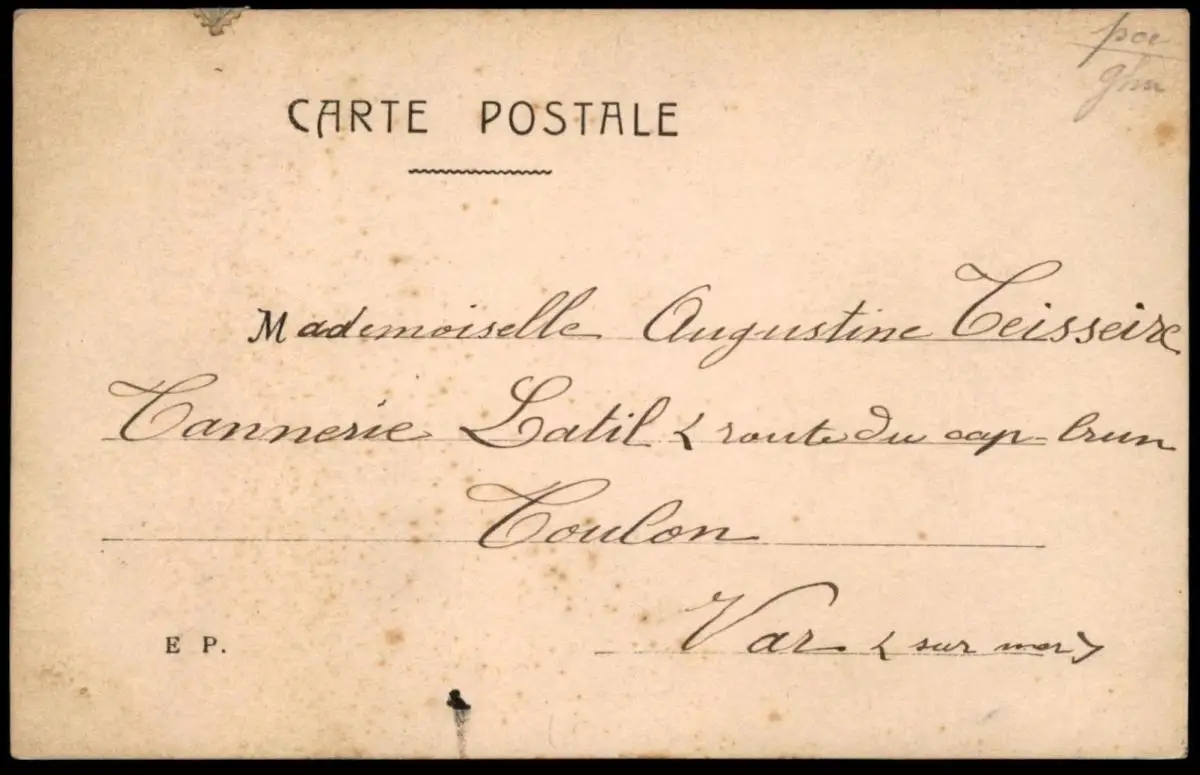 CARTE POSTALE
Mademoiselle Augustine Teisseire
Tannerie Latil ( route du cap brun
Toulon
Var ( sur mer )
E P.